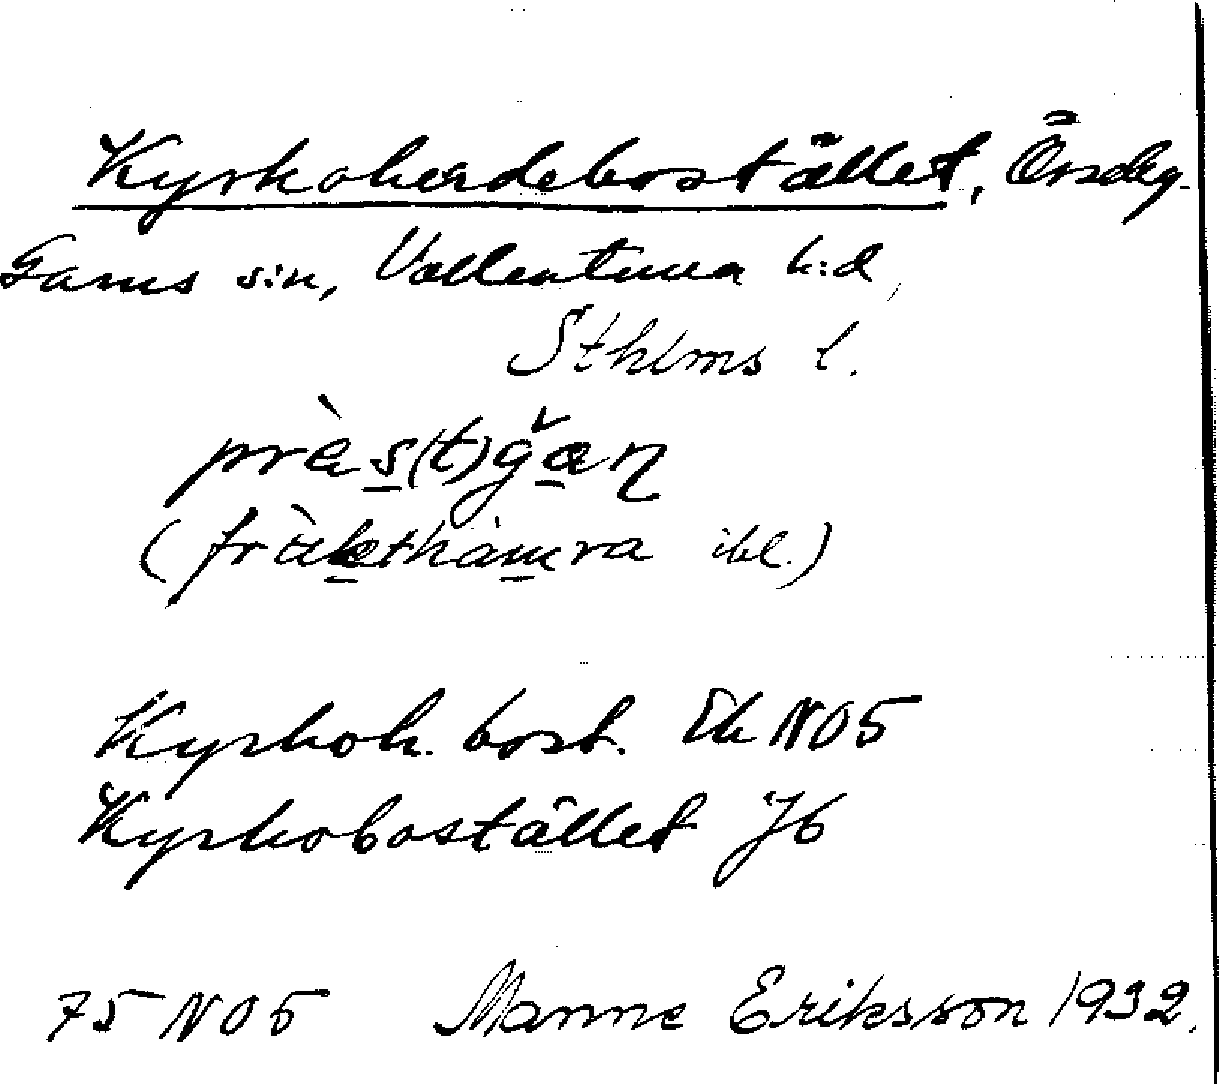 Kyrkoherdebostället,
Garns sn, Vallentuna h:d,
Sthlms l.
præ̀s(t)gǎæn
(fræ̀kthàmra ibl.)
Kyrkoh. bost. Ek NO5
Kyrkobostället Jb
75 NO5 Manne Eriksson 1932.